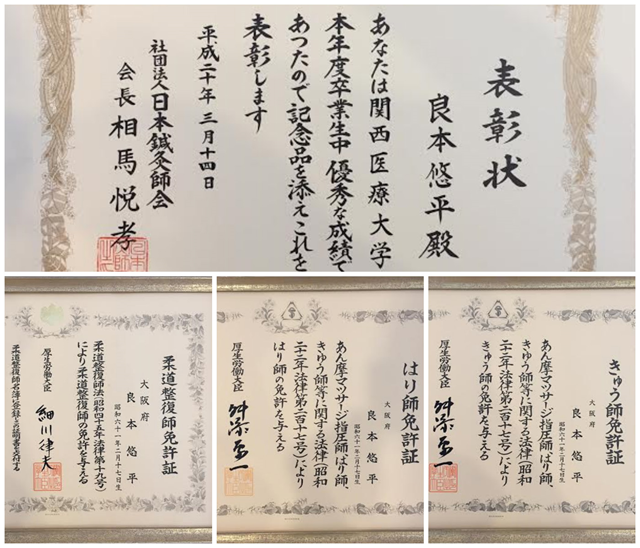 表彰状
良本悠平殿
あなたは関西医療大学
本年度卒業生中優秀な成績で
あつたので記念品を添えこれを
表彰します
平成二十年三月十四日
社団法人日本鍼灸師会
会長相馬悦孝
柔道整復師免許証
大阪府
良本悠平
昭和六十一年二月十七日生
柔道整復師法(昭和四十五年法律第十九号)
により柔道整復師の免許を与える
厚生労働大臣
細川律夫
柔道整復師名簿に登録した証明書を交付する
はり師免許証
大阪府
良本悠平
昭和六十一年二月十七日生
あん摩マツサージ指圧師、はり師、
きゆう師等に関する法律(昭和
二十二年法律第二百十七号)により
はり師の免許を与える
厚生労働大臣
舛添要一
きゆう師免許証
大阪府
良本悠平
昭和六十一年二月十七日生
あん摩マツサージ指圧師、はり師、
きゆう師等に関する法律(昭和
二十二年法律第二百十七号)により
きゆう師の免許を与える
厚生労働大臣
舛添要一